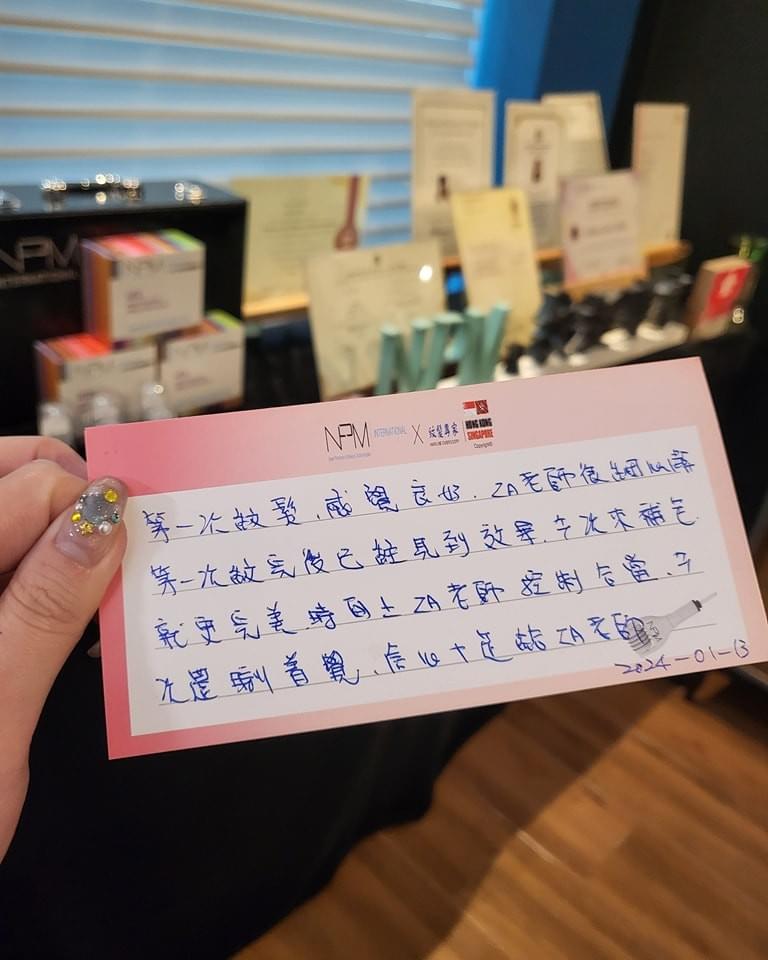 NPM
INTERNATIONAL
NPM
NPM
NPM INTERNATIONAL X 紋髮專家 HONG KONG SINGAPORE
第一次紋髮，感覺良好，ZA老師很細心講
第一次紋完後已經見到效果，今次來補色
就更完美，時間上ZA老師控制合當，今
次還瞓着覺，信心十足，給ZA老師
2024-01-13